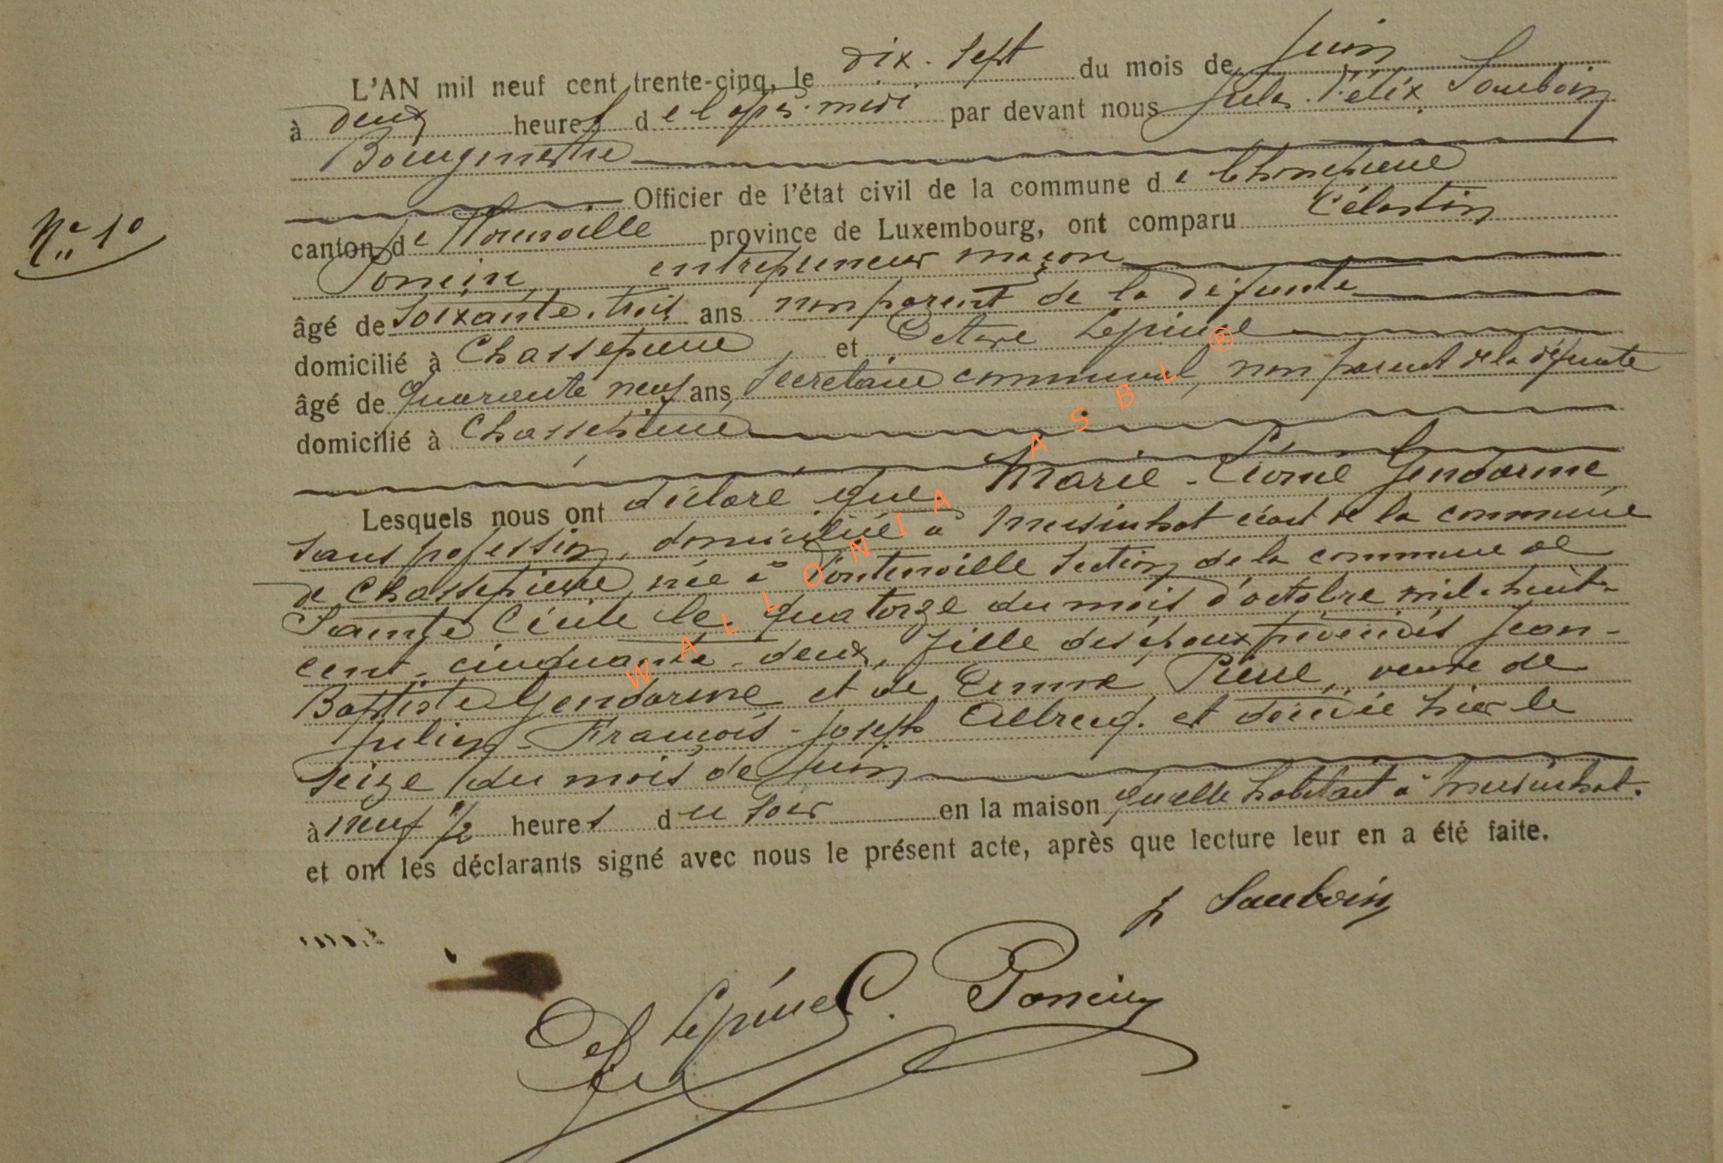 L'AN mil neuf cent trente-cinq, le dix-sept du mois de juin
à deux heures de l'après-midi par devant nous Jules Félix Sauboin
Bourgmestre
Officier de l'état civil de la commune de Chassepierre
canton de Florenville province de Luxembourg, ont comparu Célestin
Poncin, entrepreneur maçon
âgé de soixante-trois ans non parent de la défunte
domicilié à Chassepierre et Octave Lépine
âgé de quarante neuf ans, secrétaire communal, non parent de la défunte
domicilié à Chassepierre
Lesquels nous ont déclaré que Marie-Léonie Gendarme,
sans profession, domiciliée à écart de la commune
de Chassepierre, née à Fontenoille section de la commune de
Sainte Cécile le quatorze du mois d'octobre mil-huit-
cent-cinquante-deux, fille des époux Jean-
Baptiste Gendarme et de Pierre, veuve de
Julien-François-Joseph et décédée hier le
seize du mois de juin
à neuf 1/2 heures du soir en la maison qu'elle habitait à
et ont les déclarants signé avec nous le présent acte, après que lecture leur en a été faite.
N° 10
J Sauboin
Lépine C. Poncin
WALLONIA ASBL ®